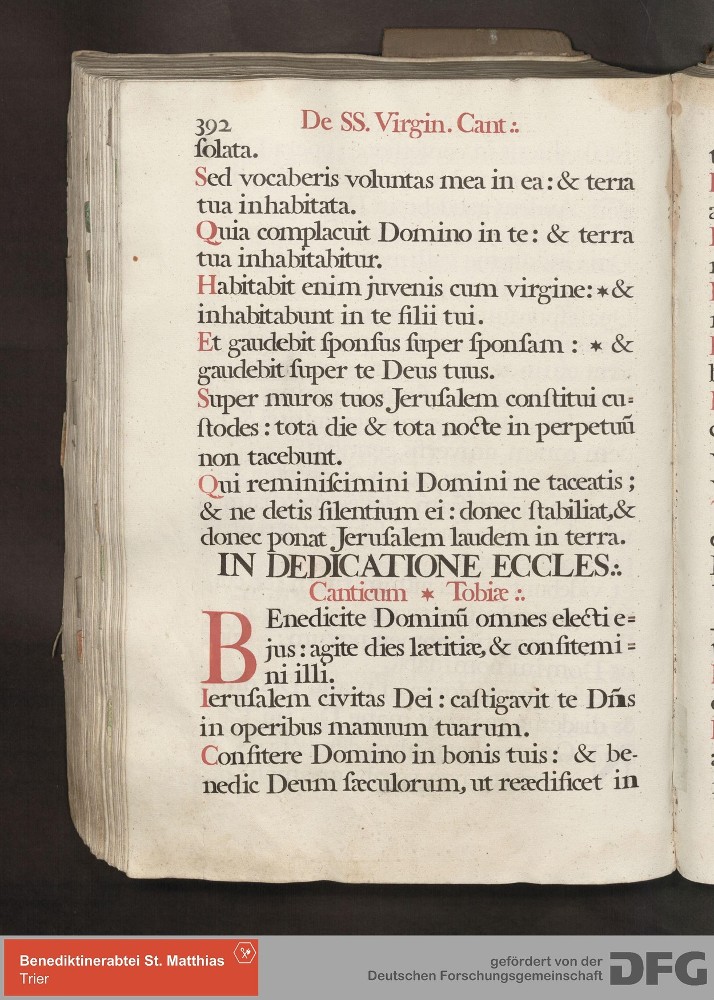 392 De SS. Virgin. Cant:.
ſolata.
Sed vocaberis voluntas mea in ea: & terra
tua inhabitata.
Quia complacuit Domino in te: & terra
tua inhabitabitur.
Habitabit enim juvenis cum virgine: * &
inhabitabunt in te filii tui.
Et gaudebit ſponſus ſuper ſponſam : * &
gaudebit ſuper te Deus tuus.
Super muros tuos Jeruſalem conſtitui cu=
ſtodes : tota die & tota nocte in perpetuū
non tacebunt.
Qui reminiſcimini Domini ne taceatis ;
& ne detis ſilentium ei : donec ſtabiliat, &
donec ponat Jeruſalem laudem in terra.
IN DEDICATIONE ECCLES:.
Canticum * Tobiæ :.
BEnedicite Dominū omnes electi e=
jus : agite dies lætitiæ, & confitemi=
ni illi.
Ieruſalem civitas Dei : caſtigavit te Dñs
in operibus manuum tuarum.
Confitere Domino in bonis tuis : & be-
nedic Deum ſæculorum, ut reædificet in
Benediktinerabtei St. Matthias
Trier
gefördert von der
Deutschen Forschungsgemeinschaft DFG